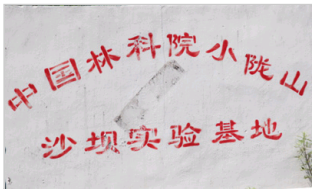 中国林科院小陇山
沙坝实验基地